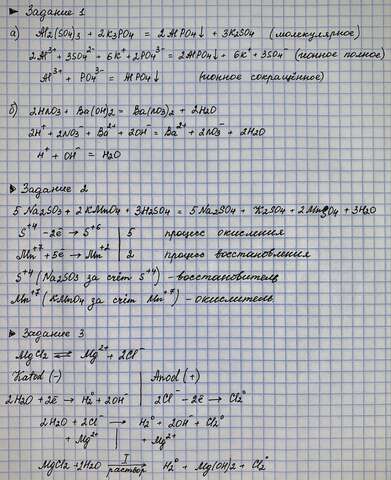 ► Задание 1
а) Al₂(SO₄)₃ + 2K₃PO₄ = 2AlPO₄↓ + 3K₂SO₄ (молекулярное)
2Al³⁺ + 3SO₄²⁻ + 6K⁺ + 2PO₄³⁻ = 2AlPO₄↓ + 6K⁺ + 3SO₄²⁻ (ионное полное)
Al³⁺ + PO₄³⁻ = AlPO₄↓ (ионное сокращённое)
б) 2HNO₃ + Ba(OH)₂ = Ba(NO₃)₂ + 2H₂O
2H⁺ + 2NO₃⁻ + Ba²⁺ + 2OH⁻ = Ba²⁺ + 2NO₃⁻ + 2H₂O
H⁺ + OH⁻ = H₂O
► Задание 2
5Na₂SO₃ + 2KMnO₄ + 3H₂SO₄ = 5Na₂SO₄ + K₂SO₄ + 2MnSO₄ + 3H₂O
S⁺⁴ -2ē → S⁺⁶ | 5 процесс окисления
Mn⁺⁷ +5ē → Mn⁺² | 2 процесс восстановления
S⁺⁴ (Na₂SO₃ за счёт S⁺⁴) - восстановитель
Mn⁺⁷ (KMnO₄ за счёт Mn⁺⁷) - окислитель
► Задание 3
MgCl₂ ⇌ Mg²⁺ + 2Cl⁻
Katod (-) | Anod (+)
2H₂O + 2ē → H₂⁰ + 2OH⁻ | 2Cl⁻ - 2ē → Cl₂⁰
2H₂O + 2Cl⁻ → H₂⁰ + 2OH⁻ + Cl₂⁰
+ Mg²⁺ | + Mg²⁺
MgCl₂ + 2H₂O →(I, раствор) H₂⁰ + Mg(OH)₂ + Cl₂⁰